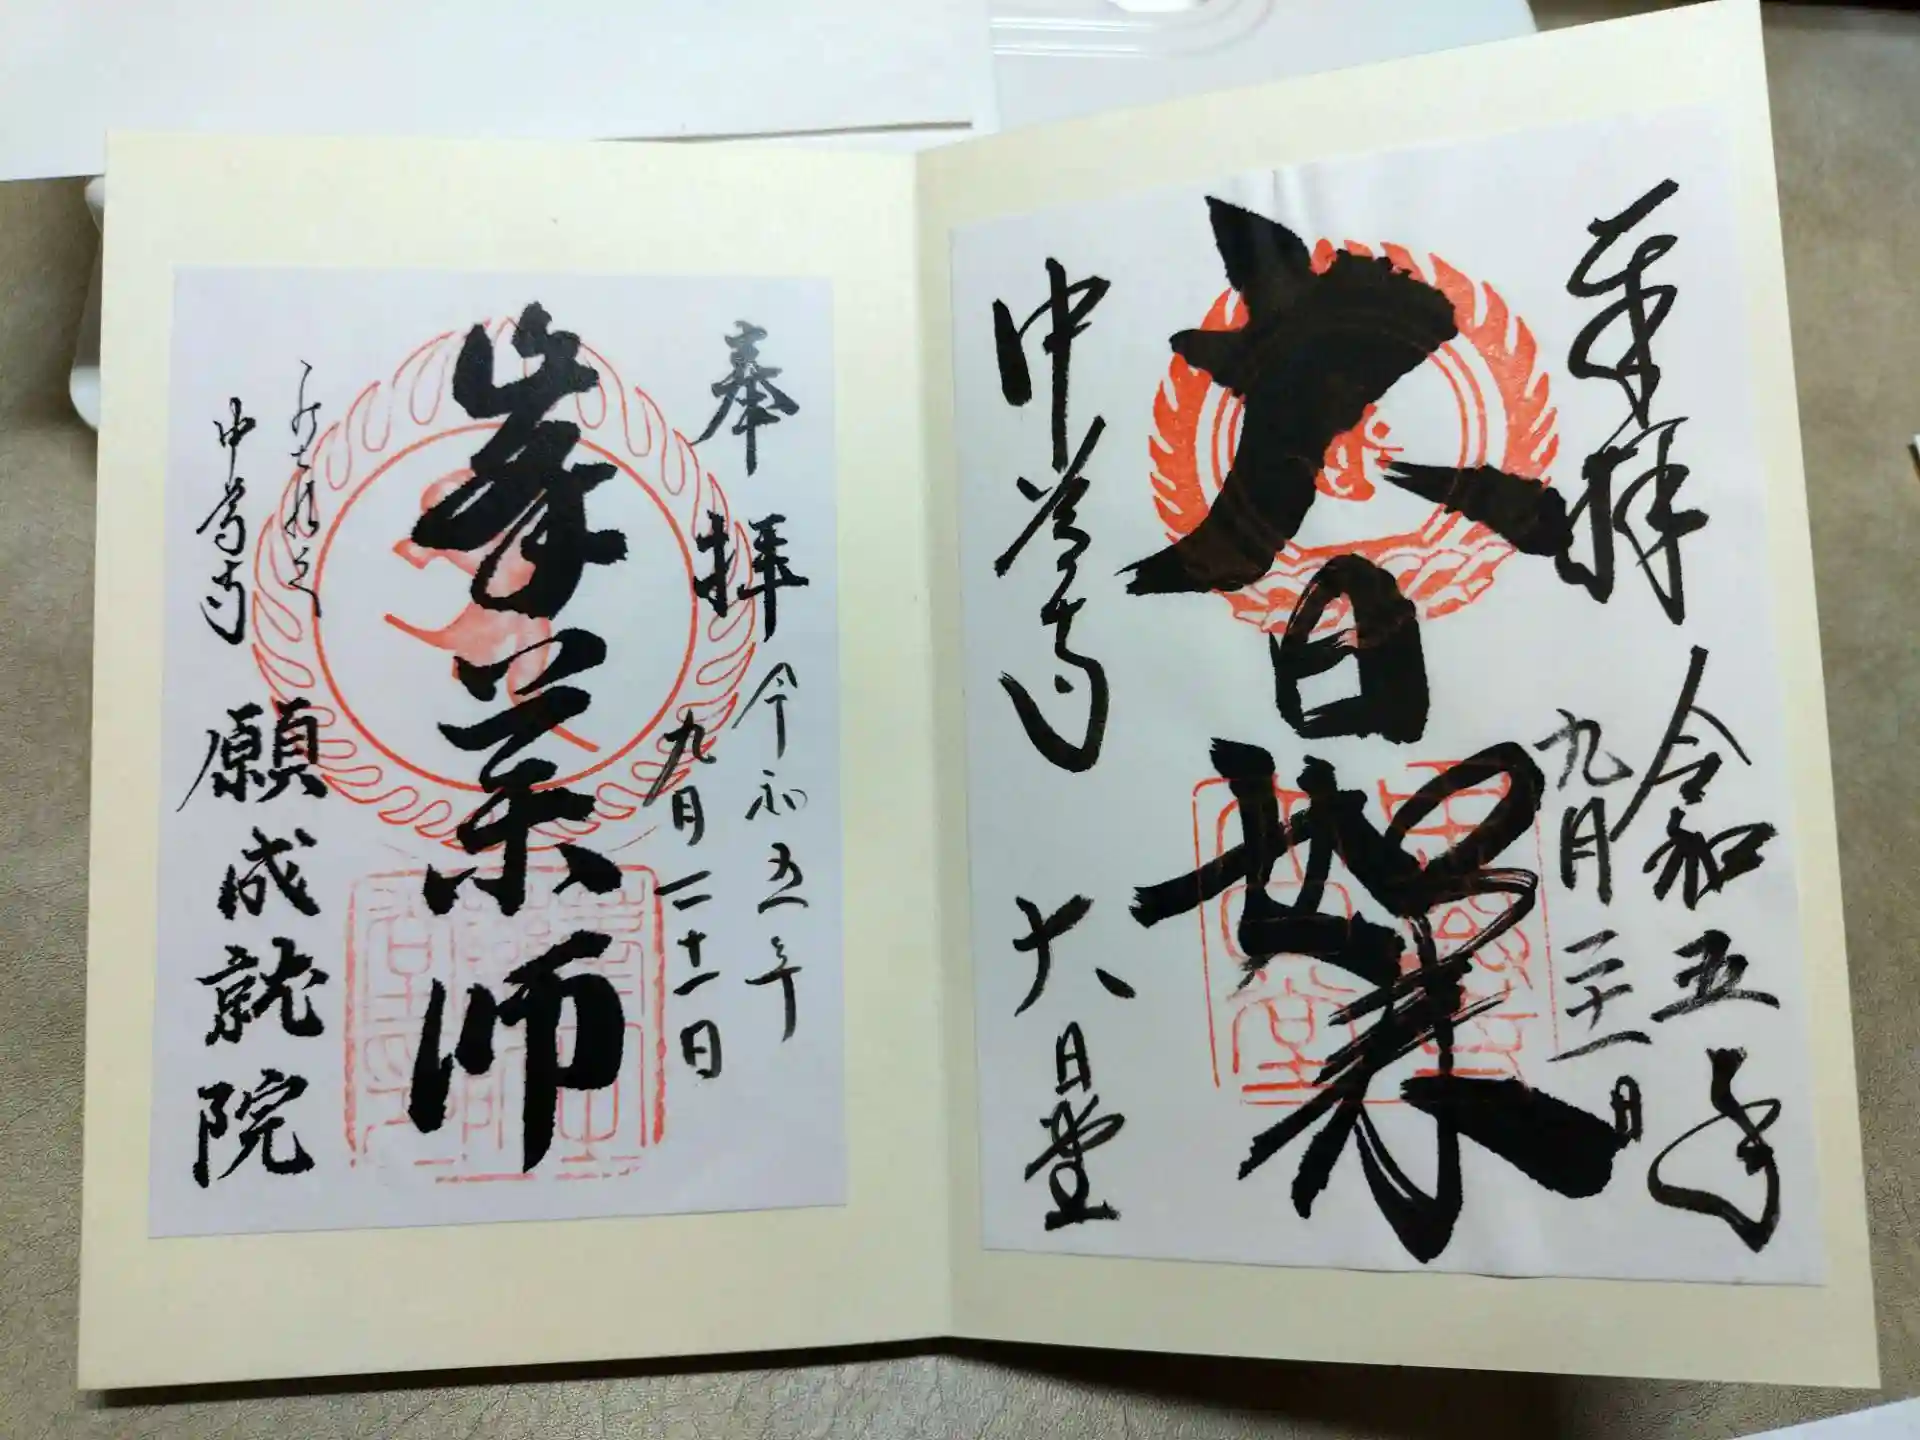 奉拝 令和五年
九月二十一日
大日如来
中尊寺 大日堂
奉拝 令和五年
九月二十一日
峯薬師
中尊寺 願成就院